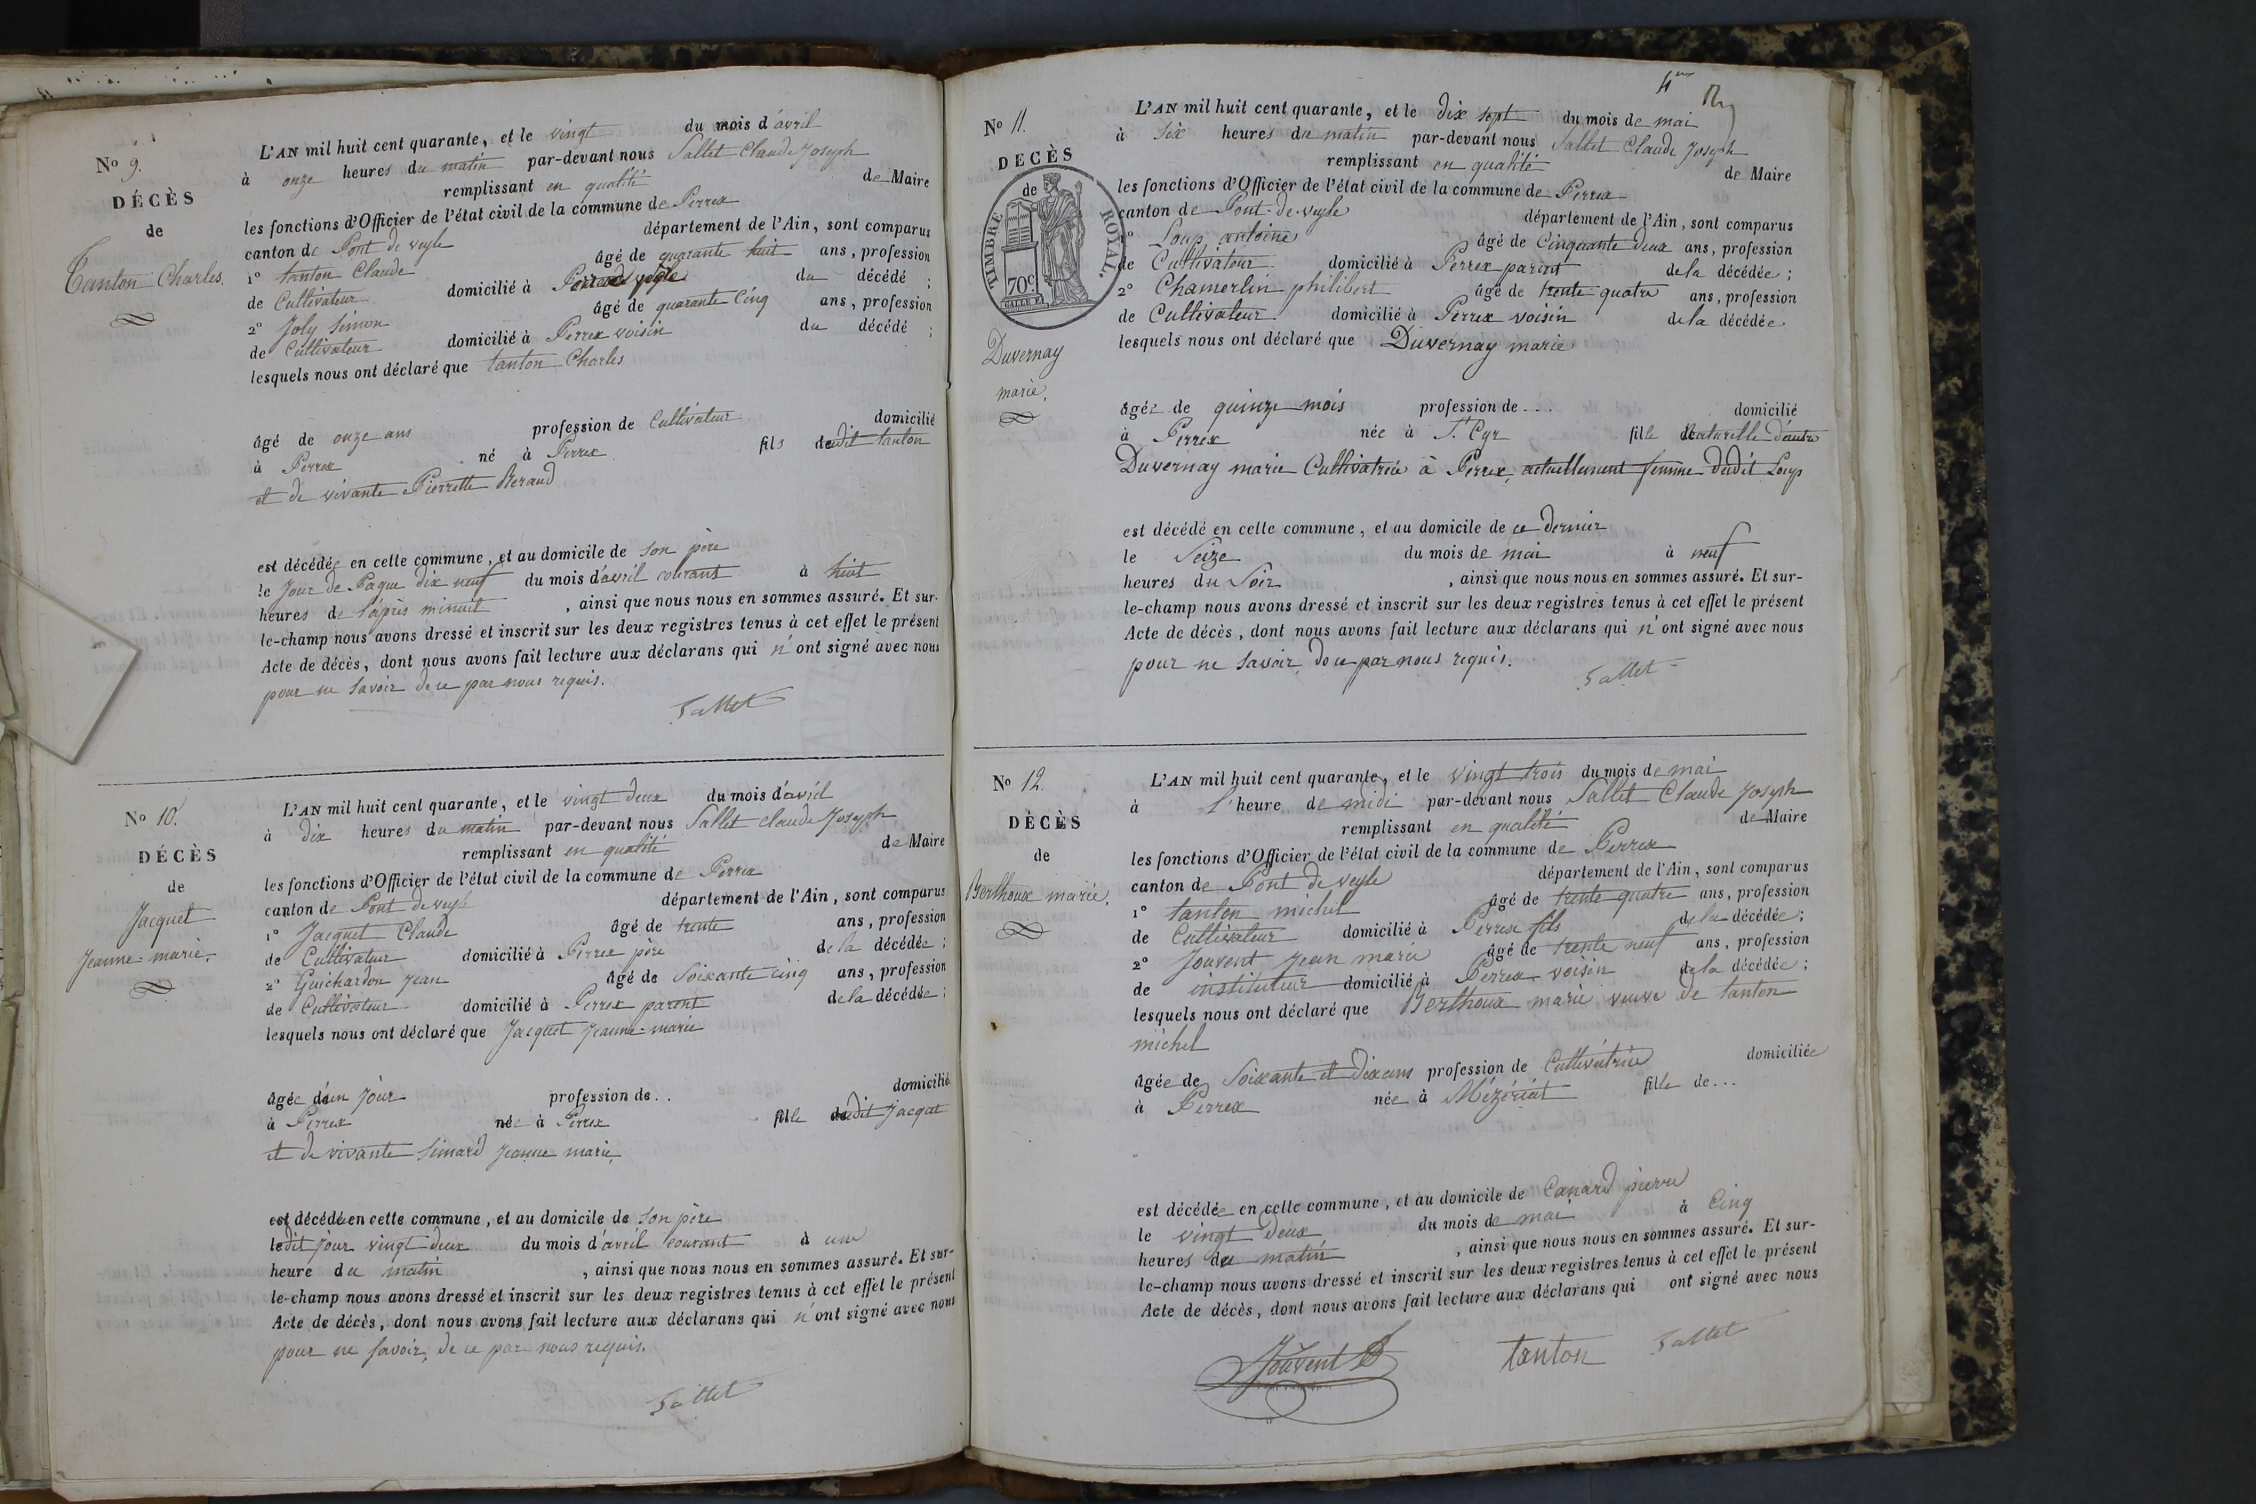 No 9.
DÉCÈS
de
Tanton Charles.
L'AN mil huit cent quarante, et le vingt du mois d'avril
à onze heures du matin par-devant nous Sallet Claude Joseph
remplissant en qualité de Maire
les fonctions d'Officier de l'état civil de la commune de Perrex
canton de Pont de veyle département de l'Ain, sont comparus
1° tanton Claude âgé de quarante huit ans, profession
de Cultivateur domicilié à du décédé ;
2° Joly Simon âgé de quarante Cinq ans, profession
de Cultivateur domicilié à Perrex voisin du décédé ;
lesquels nous ont déclaré que tanton Charles
âgé de onze ans profession de Cultivateur domicilié
à Perrex né à Perrex fils dudit tanton
et de vivante Pierrette Reraud
est décédée en cette commune, et au domicile de son père
le Jour de Paque dix neuf du mois d'avril courant à huit
heures de l'après minuit , ainsi que nous nous en sommes assuré. Et sur-
le-champ nous avons dressé et inscrit sur les deux registres tenus à cet effet le présent
Acte de décès, dont nous avons fait lecture aux déclarans qui n'ont signé avec nous
pour ne Savoir de ce par nous requis.
Sallet
No 10.
DÉCÈS
de
Jacquet
Jeanne-marie.
L'AN mil huit cent quarante, et le vingt deux du mois d'avril
à dix heures du matin par-devant nous Sallet Claude Joseph
remplissant en qualité de Maire
les fonctions d'Officier de l'état civil de la commune de Perrex
canton de Pont de veyle département de l'Ain, sont comparus
1° Jacquet Claude âgé de trente ans, profession
de Cultivateur domicilié à Perrex père de la décédée ;
2° Guichardon Jean âgé de Soixante cinq ans, profession
de Cultivateur domicilié à Perrex parent de la décédée ;
lesquels nous ont déclaré que Jacquet Jeanne-marie
âgée d'un jour profession de .. domicilié
à Perrex née à Perrex fille dudit Jacquet
et de vivante Simard Jeanne marie,
est décédée en cette commune, et au domicile de son père
ledit jour vingt deux du mois d'avril courant à une
heure du matin , ainsi que nous nous en sommes assuré. Et sur-
le-champ nous avons dressé et inscrit sur les deux registres tenus à cet effet le présent
Acte de décès, dont nous avons fait lecture aux déclarans qui n'ont signé avec nous
pour ne Savoir, de ce par nous requis.
Sallet
4
No 11.
DÉCÈS
de
TIMBRE ROYAL.
70c.
Duvernay
marie.
L'AN mil huit cent quarante, et le dix sept du mois de mai
à Six heures du matin par-devant nous Sallet Claude Joseph
remplissant en qualité de Maire
les fonctions d'Officier de l'état civil de la commune de Perrex
canton de Pont-de-veyle département de l'Ain, sont comparus
1° Loup antoine âgé de Cinquante deux ans, profession
de Cultivateur domicilié à Perrex parent de la décédée ;
2° Chamerlin philibert âgé de trente quatre ans, profession
de Cultivateur domicilié à Perrex voisin de la décédée
lesquels nous ont déclaré que Duvernay marie
âgée de quinze mois profession de ... domicilié
à Perrex née à St. Cyr fille Naturelle d'autre
Duvernay marie Cultivatrice à Perrex, actuellement femme dudit Loup
est décédé en cette commune, et au domicile de ce dernier
le Seize du mois de mai à neuf
heures du Soir , ainsi que nous nous en sommes assuré. Et sur-
le-champ nous avons dressé et inscrit sur les deux registres tenus à cet effet le présent
Acte de décès, dont nous avons fait lecture aux déclarans qui n'ont signé avec nous
pour ne Savoir de ce par nous requis.
Sallet
No 12.
DÉCÈS
de
Berthoux marie.
L'AN mil huit cent quarante, et le vingt trois du mois de mai
à l'heure de midi par-devant nous Sallet Claude Joseph
remplissant en qualité de Maire
les fonctions d'Officier de l'état civil de la commune de Perrex
canton de Pont de veyle département de l'Ain, sont comparus
1° tanton michel âgé de trente quatre ans, profession
de Cultivateur domicilié à Perrex fils de la décédée ;
2° Jouvent Jean marie âgé de trente neuf ans, profession
de instituteur domicilié à Perrex voisin de la décédée ;
lesquels nous ont déclaré que Berthoux marie veuve de tanton
michel
âgée de Soixante et dix ans profession de Cultivatrice domiciliée
à Perrex née à Mézériat fille de ...
est décédée en cette commune, et au domicile de Canard pierre
le vingt deux du mois de mai à Cinq
heures du matin , ainsi que nous nous en sommes assuré. Et sur-
le-champ nous avons dressé et inscrit sur les deux registres tenus à cet effet le présent
Acte de décès, dont nous avons fait lecture aux déclarans qui ont signé avec nous
Jouvent tanton Sallet